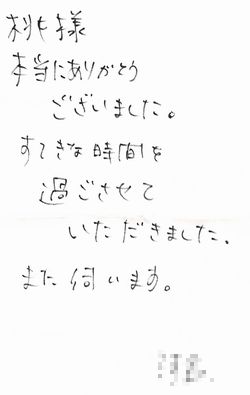 桃様
本当にありがとう
ございました。
すてきな時間を
過ごさせて
いただきました。
また伺います。